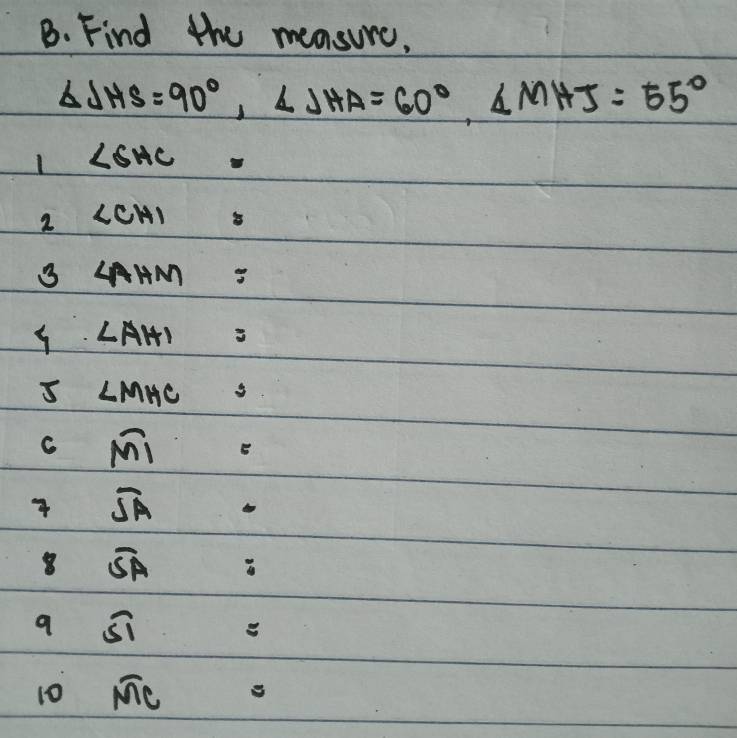 B. Find the measure.
∡JHS = 90°, ∡JHA = 60°, ∡MHJ = 55°
1 ∠SHC =
2 ∠CHI =
3 ∠AHM =
4 ∠AHI =
5 ∠MHC =
6 M͡I =
7 J͡A =
8 S͡A =
9 S͡I =
10 M͡C =